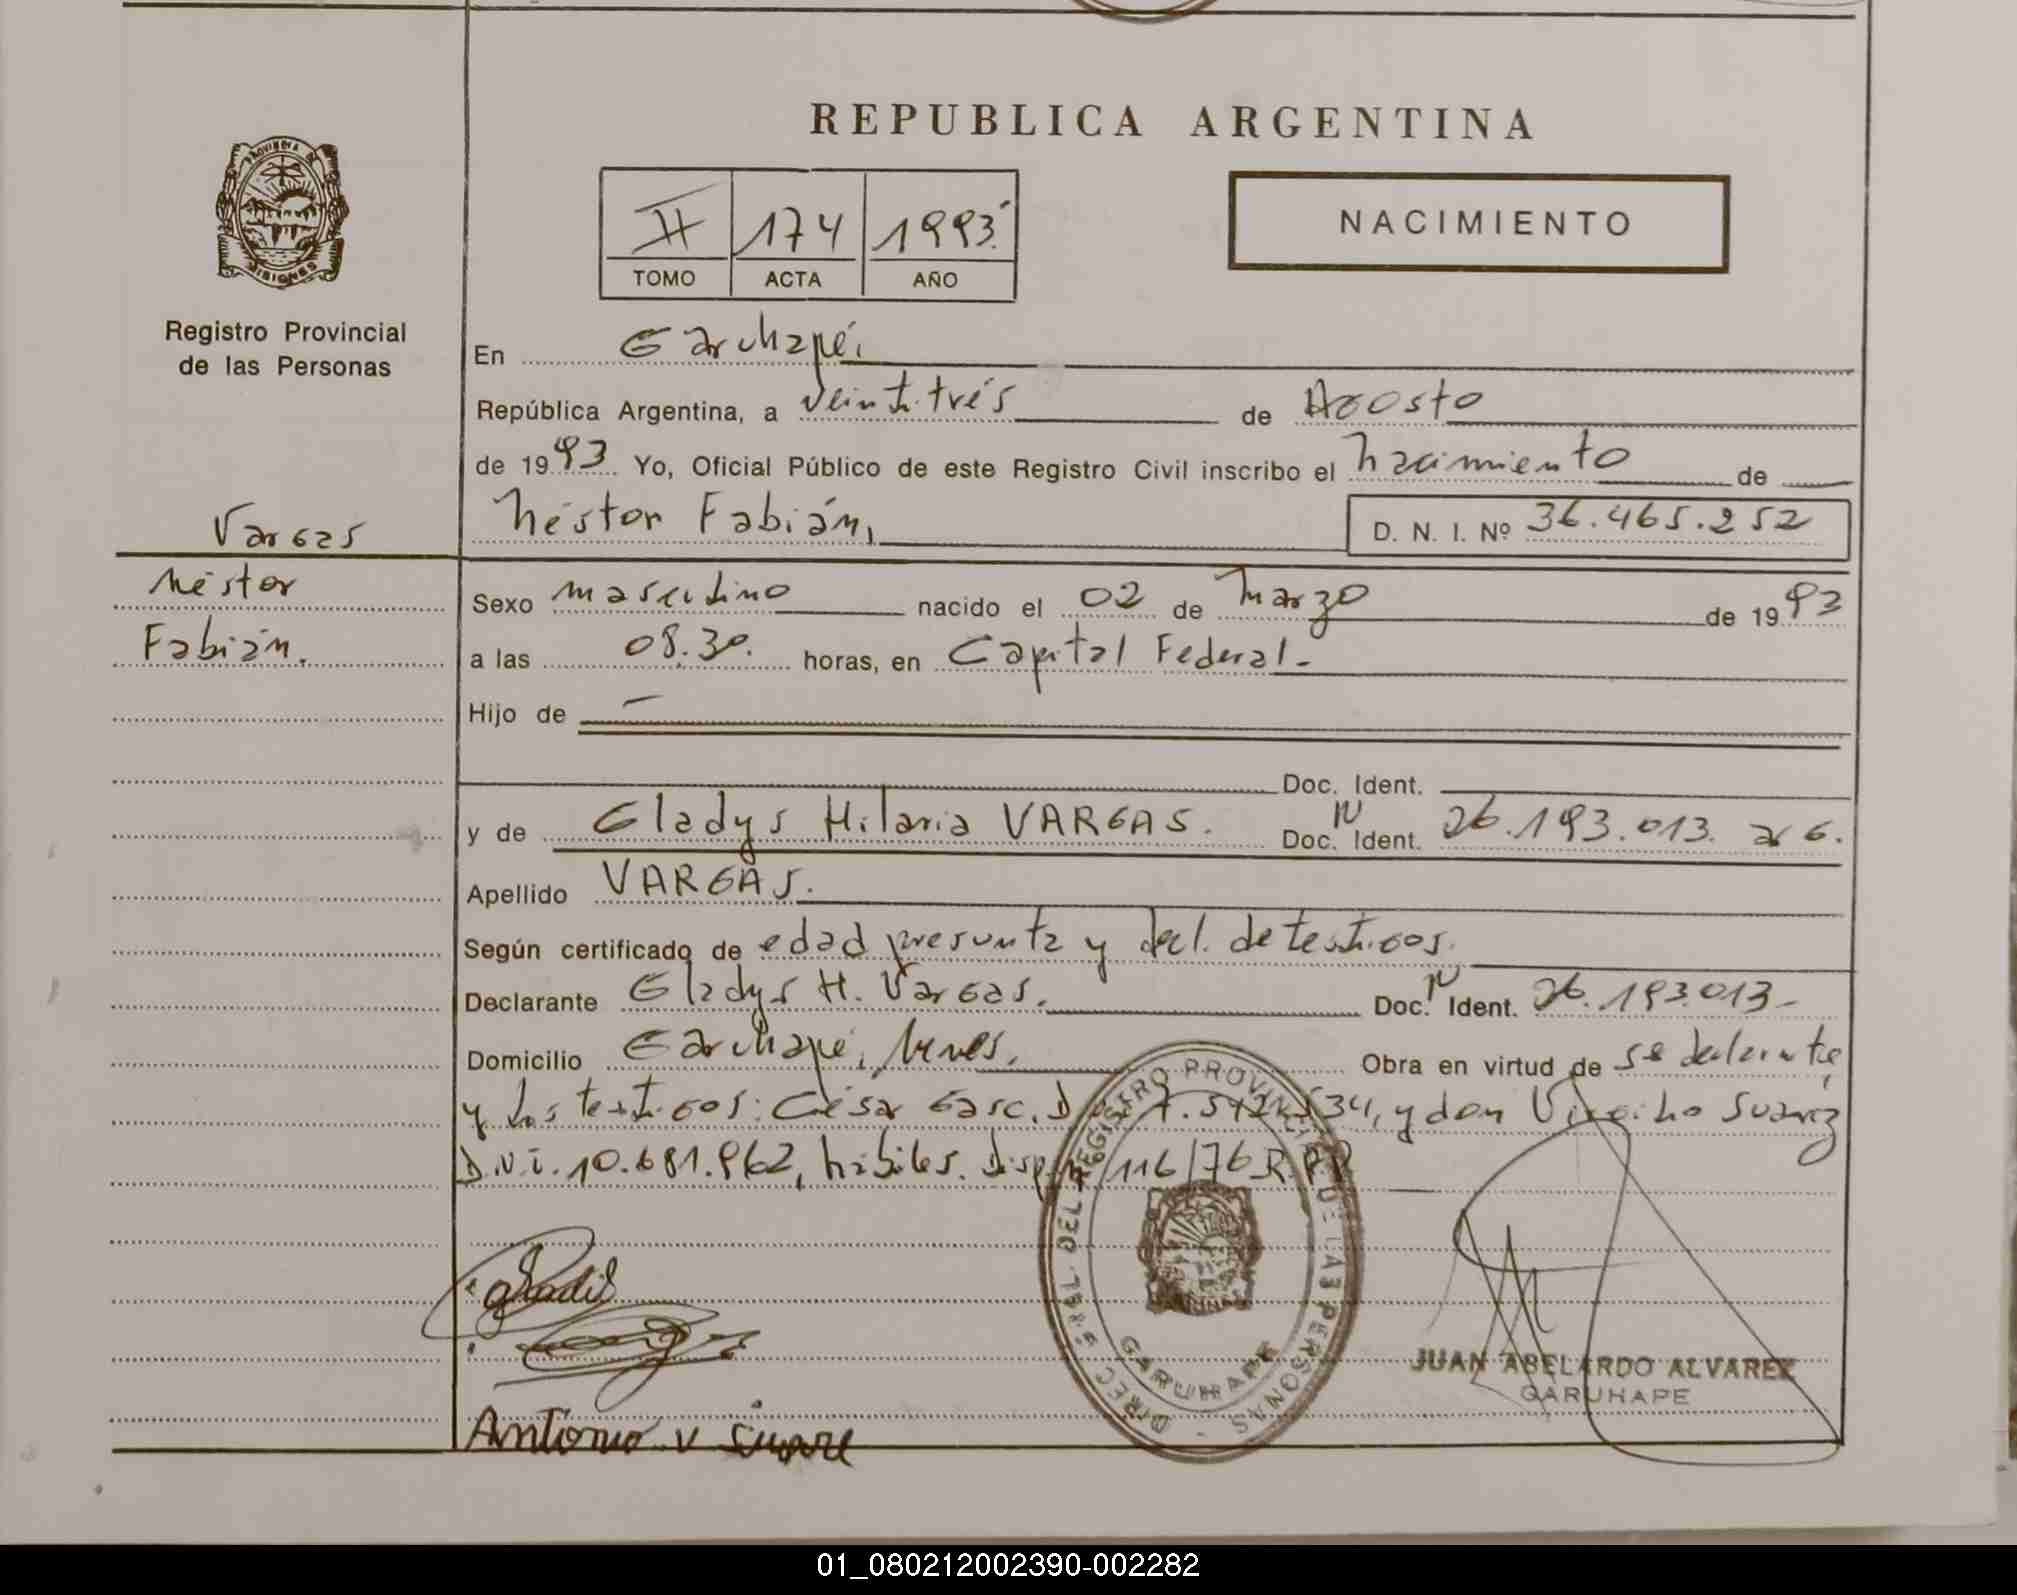 REPUBLICA ARGENTINA
PROVINCIA DE
MISIONES
Registro Provincial
de las Personas
II 174 1993
TOMO ACTA AÑO
NACIMIENTO
En Garuhapé,
República Argentina, a Veintitrés de Agosto
de 1993 Yo, Oficial Público de este Registro Civil inscribo el nacimiento de
Néstor Fabián, D. N. I. Nº 36.465.252
Vargas
Néstor
Fabián.
Sexo masculino nacido el 02 de Marzo de 1992
a las 08.30. horas, en Capital Federal.-
Hijo de —
Doc. Ident.
y de Gladys Hilaria VARGAS. Doc. N Ident. 26.193.013. ag.
Apellido VARGAS.
Según certificado de edad presunta y decl. de testigos.
Declarante Gladys H. Vargas. Doc. N Ident. 26.193.013-
Domicilio Garuhapé, Mnes. Obra en virtud de se declarante
y los testigos: César Garc. D 534, y don Virgilio Suarez
D.N.I. 10.681.962, hábiles. Disp. 116/76 R.P.P.
Gladis
Antonio v
DIREC. GRAL. DEL REGISTRO PROVINCIAL DE LAS PERSONAS -
GARUHAPE
JUAN ABELARDO ALVAREZ
GARUHAPE
01_080212002390-002282